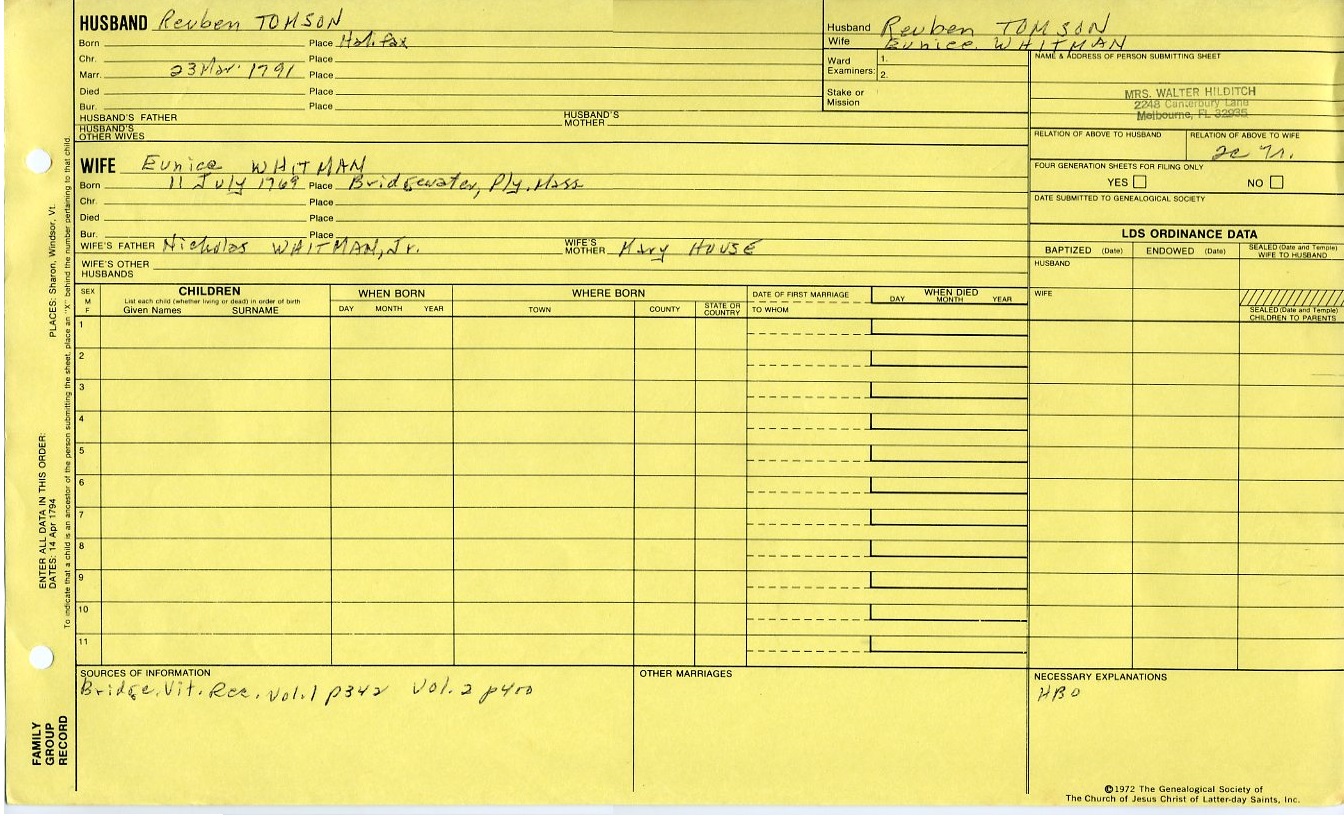 HUSBAND Reuben TOMSON
Born Place Halifax
Chr. Place
Marr. 23 Mar. 1791 Place
Died Place
Bur. Place
HUSBAND'S FATHER HUSBAND'S MOTHER
HUSBAND'S OTHER WIVES
Husband Reuben TOMSON
Wife Eunice WHITMAN
Ward Examiners: 1.
2.
Stake or Mission
NAME & ADDRESS OF PERSON SUBMITTING SHEET
MRS. WALTER HILDITCH
2248 Canterbury Lane
Melbourne, FL 32935
RELATION OF ABOVE TO HUSBAND RELATION OF ABOVE TO WIFE
2c 7r.
FOUR GENERATION SHEETS FOR FILING ONLY
YES NO
DATE SUBMITTED TO GENEALOGICAL SOCIETY
WIFE Eunice WHITMAN
Born 11 July 1769 Place Bridgewater, Ply. Mass
Chr. Place
Died Place
Bur. Place
WIFE'S FATHER Nicholas WHITMAN, Jr. WIFE'S MOTHER Mary HOUSE
WIFE'S OTHER HUSBANDS
LDS ORDINANCE DATA
BAPTIZED (Date) ENDOWED (Date) SEALED (Date and Temple) WIFE TO HUSBAND
HUSBAND
WIFE
SEALED (Date and Temple) CHILDREN TO PARENTS
SEX M F
CHILDREN
List each child (whether living or dead) in order of birth
Given Names SURNAME
WHEN BORN
DAY MONTH YEAR
WHERE BORN
TOWN COUNTY STATE OR COUNTRY
DATE OF FIRST MARRIAGE
TO WHOM
WHEN DIED
DAY MONTH YEAR
1
2
3
4
5
6
7
8
9
10
11
SOURCES OF INFORMATION
Bridge. Vit. Rec. Vol. 1 p342 Vol. 2 p400
OTHER MARRIAGES
NECESSARY EXPLANATIONS
HBO
©1972 The Genealogical Society of
The Church of Jesus Christ of Latter-day Saints, Inc.
FAMILY GROUP RECORD
ENTER ALL DATA IN THIS ORDER:
DATES: 14 Apr 1794
PLACES: Sharon, Windsor, Vt.
To indicate that a child is an ancestor of the person submitting the sheet, place an "X" behind the number pertaining to that child.